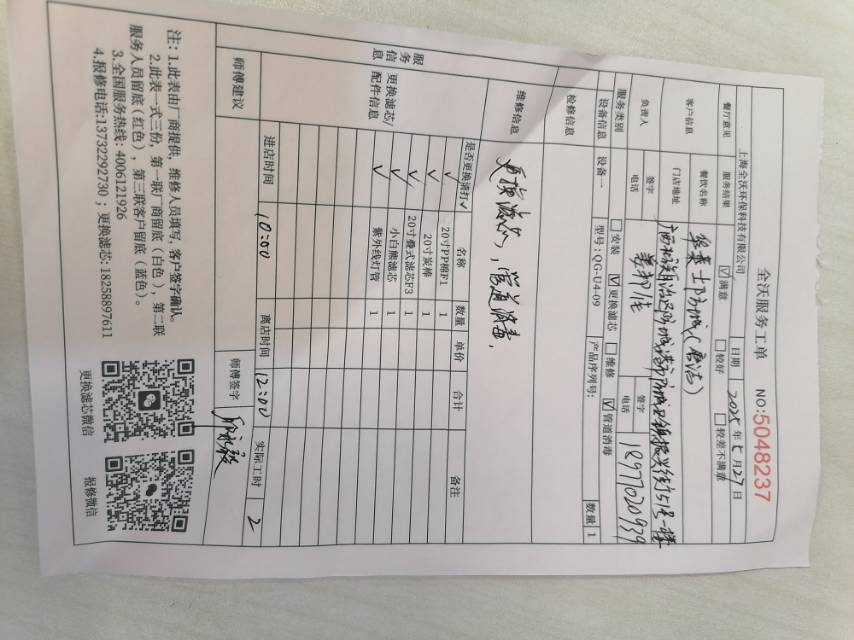 全沃服务工单 NO:5048237
上海全沃环保科技有限公司 日期 2025年5月27日
餐厅意见 服务结果 ☑满意 □较好 □较差不满意
客户信息 餐饮名称 华莱士防城(唐洁)
门店地址 广西壮族自治区防城港市防城区镇振兴街15号一楼
负责人 签字 签字
电话 电话 18977020939
服务类别 □安装 ☑更换滤芯 □维修 ☑管道消毒
设备信息 设备一 型号:QG-U4-09 产品序列号: 数量 1
检修信息
维修信息 更换滤芯,管道消毒,
服务信息 更换滤芯/配件信息 是否更换请打✓ 名称 数量 单价 合计 备注
✓ 20寸PP棉F1 1
✓ 20寸炭棒 1
✓ 20寸叠式滤芯F3 1
✓ 小白熊滤芯 1
✓ 紫外线灯管 1
进店时间 10:00 离店时间 12:00 实际工时 2
师傅建议 师傅签字
注:1.此表由厂商提供,维修人员填写,客户签字确认。
2.此表一式三份,第一联厂商留底(白色),第二联
服务人员留底(红色),第三联客户留底(蓝色)。
3.全国服务热线:4006121926
4.报修电话:13732292730;更换滤芯:18258897611
更换滤芯微信 报修微信